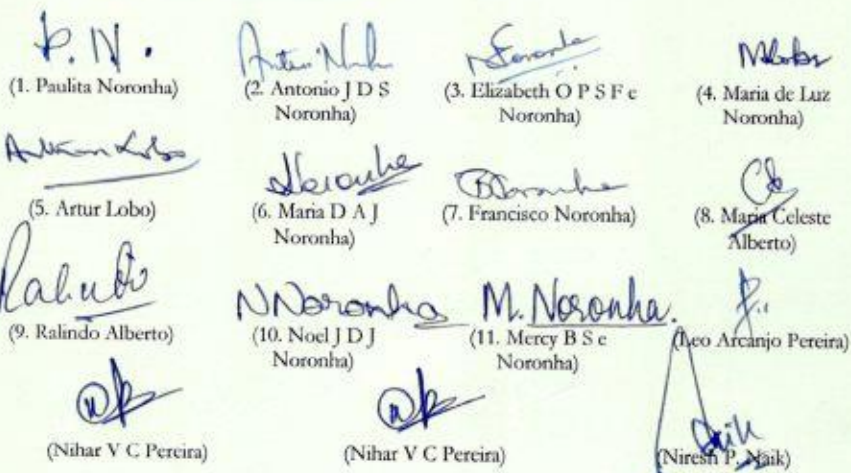 P. N.
(1. Paulita Noronha)
(2. Antonio J D S
Noronha)
(3. Elizabeth O P S F e
Noronha)
(4. Maria de Luz
Noronha)
(5. Artur Lobo)
Noronha
(6. Maria D A J
Noronha)
Noronha
(7. Francisco Noronha)
(8. Maria Celeste
Alberto)
Ralindo
(9. Ralindo Alberto)
N Noronha
(10. Noel J D J
Noronha)
M. Noronha.
(11. Mercy B S e
Noronha)
(Leo Arcanjo Pereira)
(Nihar V C Pereira)
(Nihar V C Pereira)
Naik
(Niresh P. Naik)